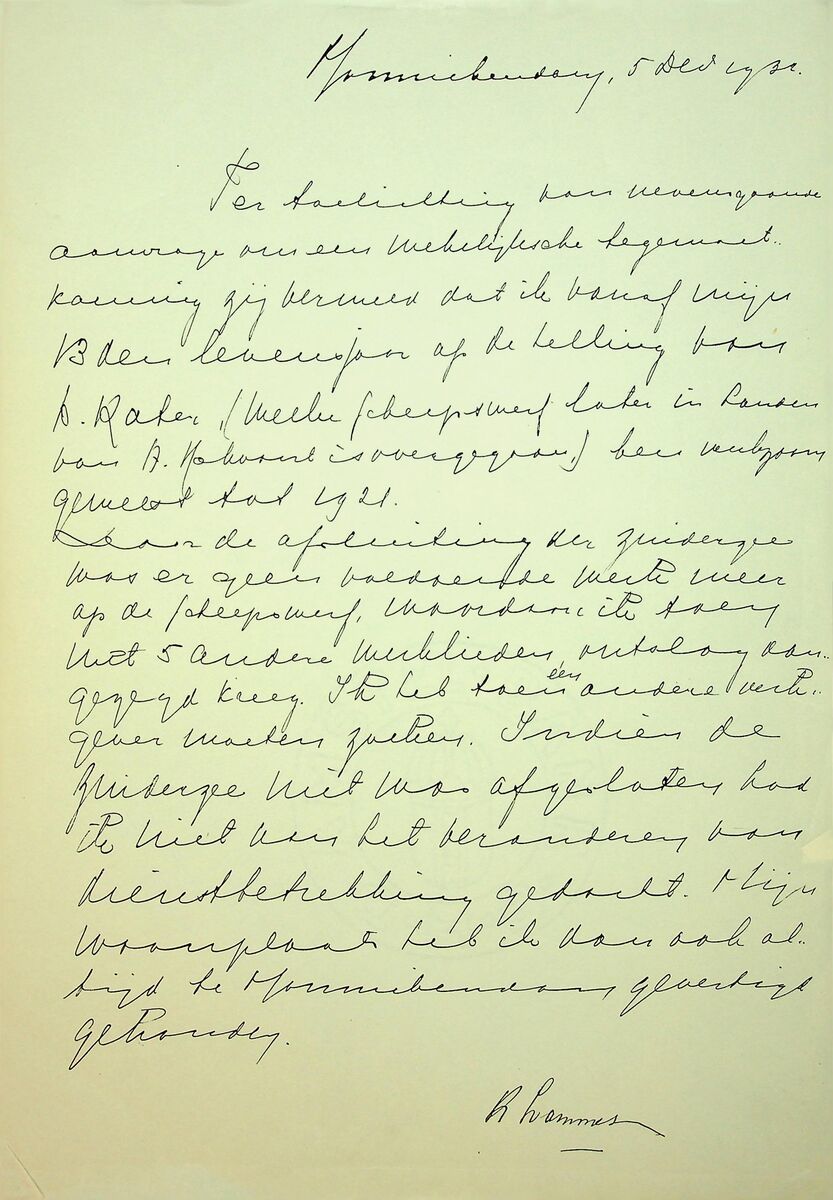 Monnickendam, 5 Dec 1931.
Ter toelichting van nevensgaande
aanvrage om een wekelijksche tegemoet-
koming zij vermeld dat ik vanaf mijn
13den levensjaar op de helling van
Kater, (welke scheepswerf later in handen
van A. is overgegaan,) ben werkzaam
geweest tot 1921.
Door de afsluiting der Zuiderzee
was er geen voldoende werk meer
op de scheepswerf, waardoor ik toen
met 5 andere werklieden ontslag aan-
gezegd kreeg. Ik heb toen een andere werk-
gever moeten zoeken. Indien de
Zuiderzee niet was afgesloten had
ik niet van het veranderen van
dienstbetrekking gedacht. Mijn
woonplaats heb ik dan ook al-
tijd te Monnickendam gevestigd
gehouden.